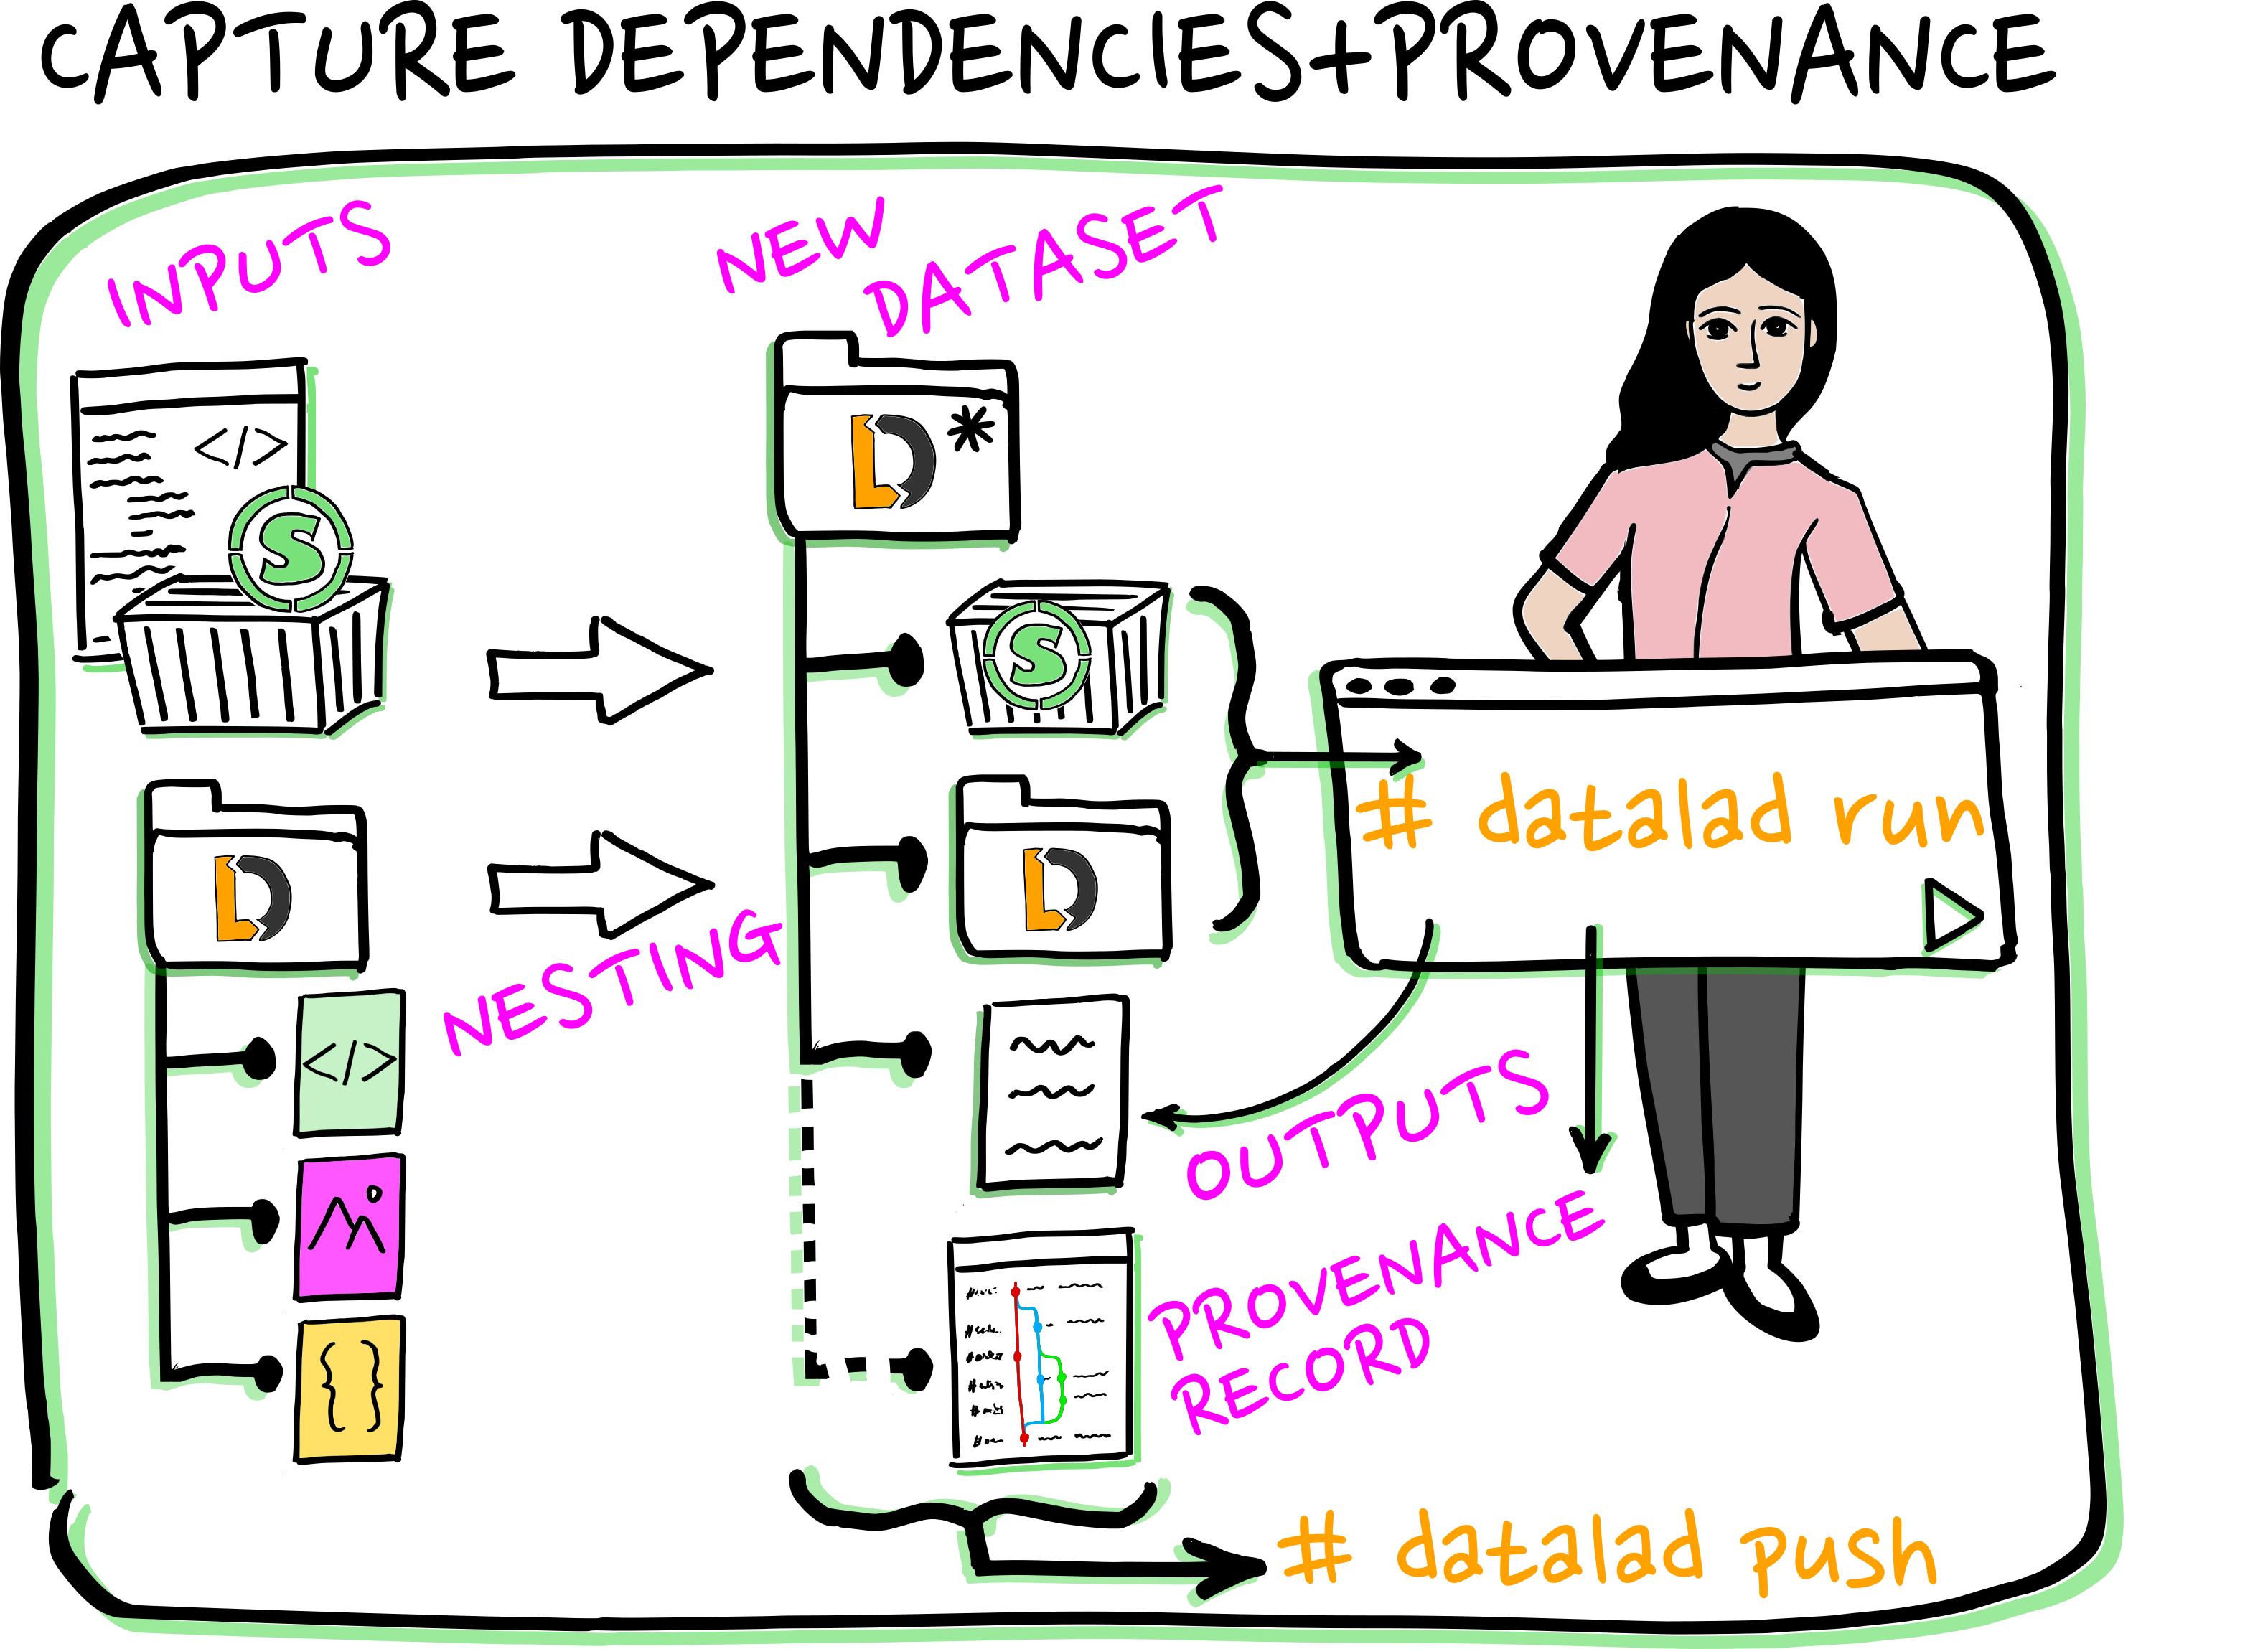 CAPTURE DEPENDENCIES+PROVENANCE
INPUTS
NEW
DATASET
</>
S
LD*
S
# datalad run
LD
LD
NESTING
</>
OUTPUTS
{ }
PROVENANCE
RECORD
# datalad push